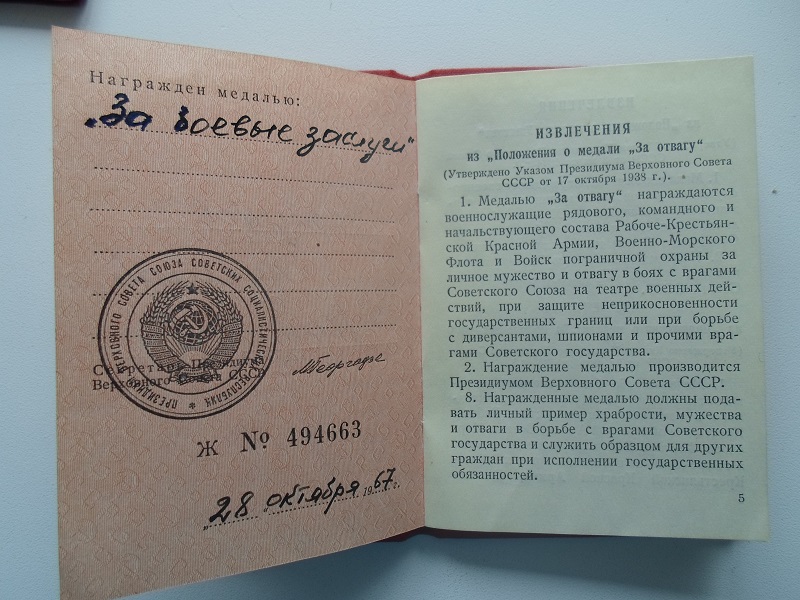 Награжден медалью:
„За боевые заслуги"
ПРЕЗИДИУМ ВЕРХОВНОГО СОВЕТА СОЮЗА СОВЕТСКИХ СОЦИАЛИСТИЧЕСКИХ РЕСПУБЛИК
Секретарь Президиума
Верховного Совета СССР
МГеоргадзе
Ж № 494663
„28 октября 1967 г.
ИЗВЛЕЧЕНИЯ
из „Положения о медали „За отвагу"
(Утверждено Указом Президиума Верховного Совета
СССР от 17 октября 1938 г.).
1. Медалью „За отвагу" награждаются
военнослужащие рядового, командного и
начальствующего состава Рабоче-Крестьян-
ской Красной Армии, Военно-Морского
Флота и Войск пограничной охраны за
личное мужество и отвагу в боях с врагами
Советского Союза на театре военных дей-
ствий, при защите неприкосновенности
государственных границ или при борьбе
с диверсантами, шпионами и прочими вра-
гами Советского государства.
2. Награждение медалью производится
Президиумом Верховного Совета СССР.
8. Награжденные медалью должны пода-
вать личный пример храбрости, мужества
и отваги в борьбе с врагами Советского
государства и служить образцом для других
граждан при исполнении государственных
обязанностей.
5